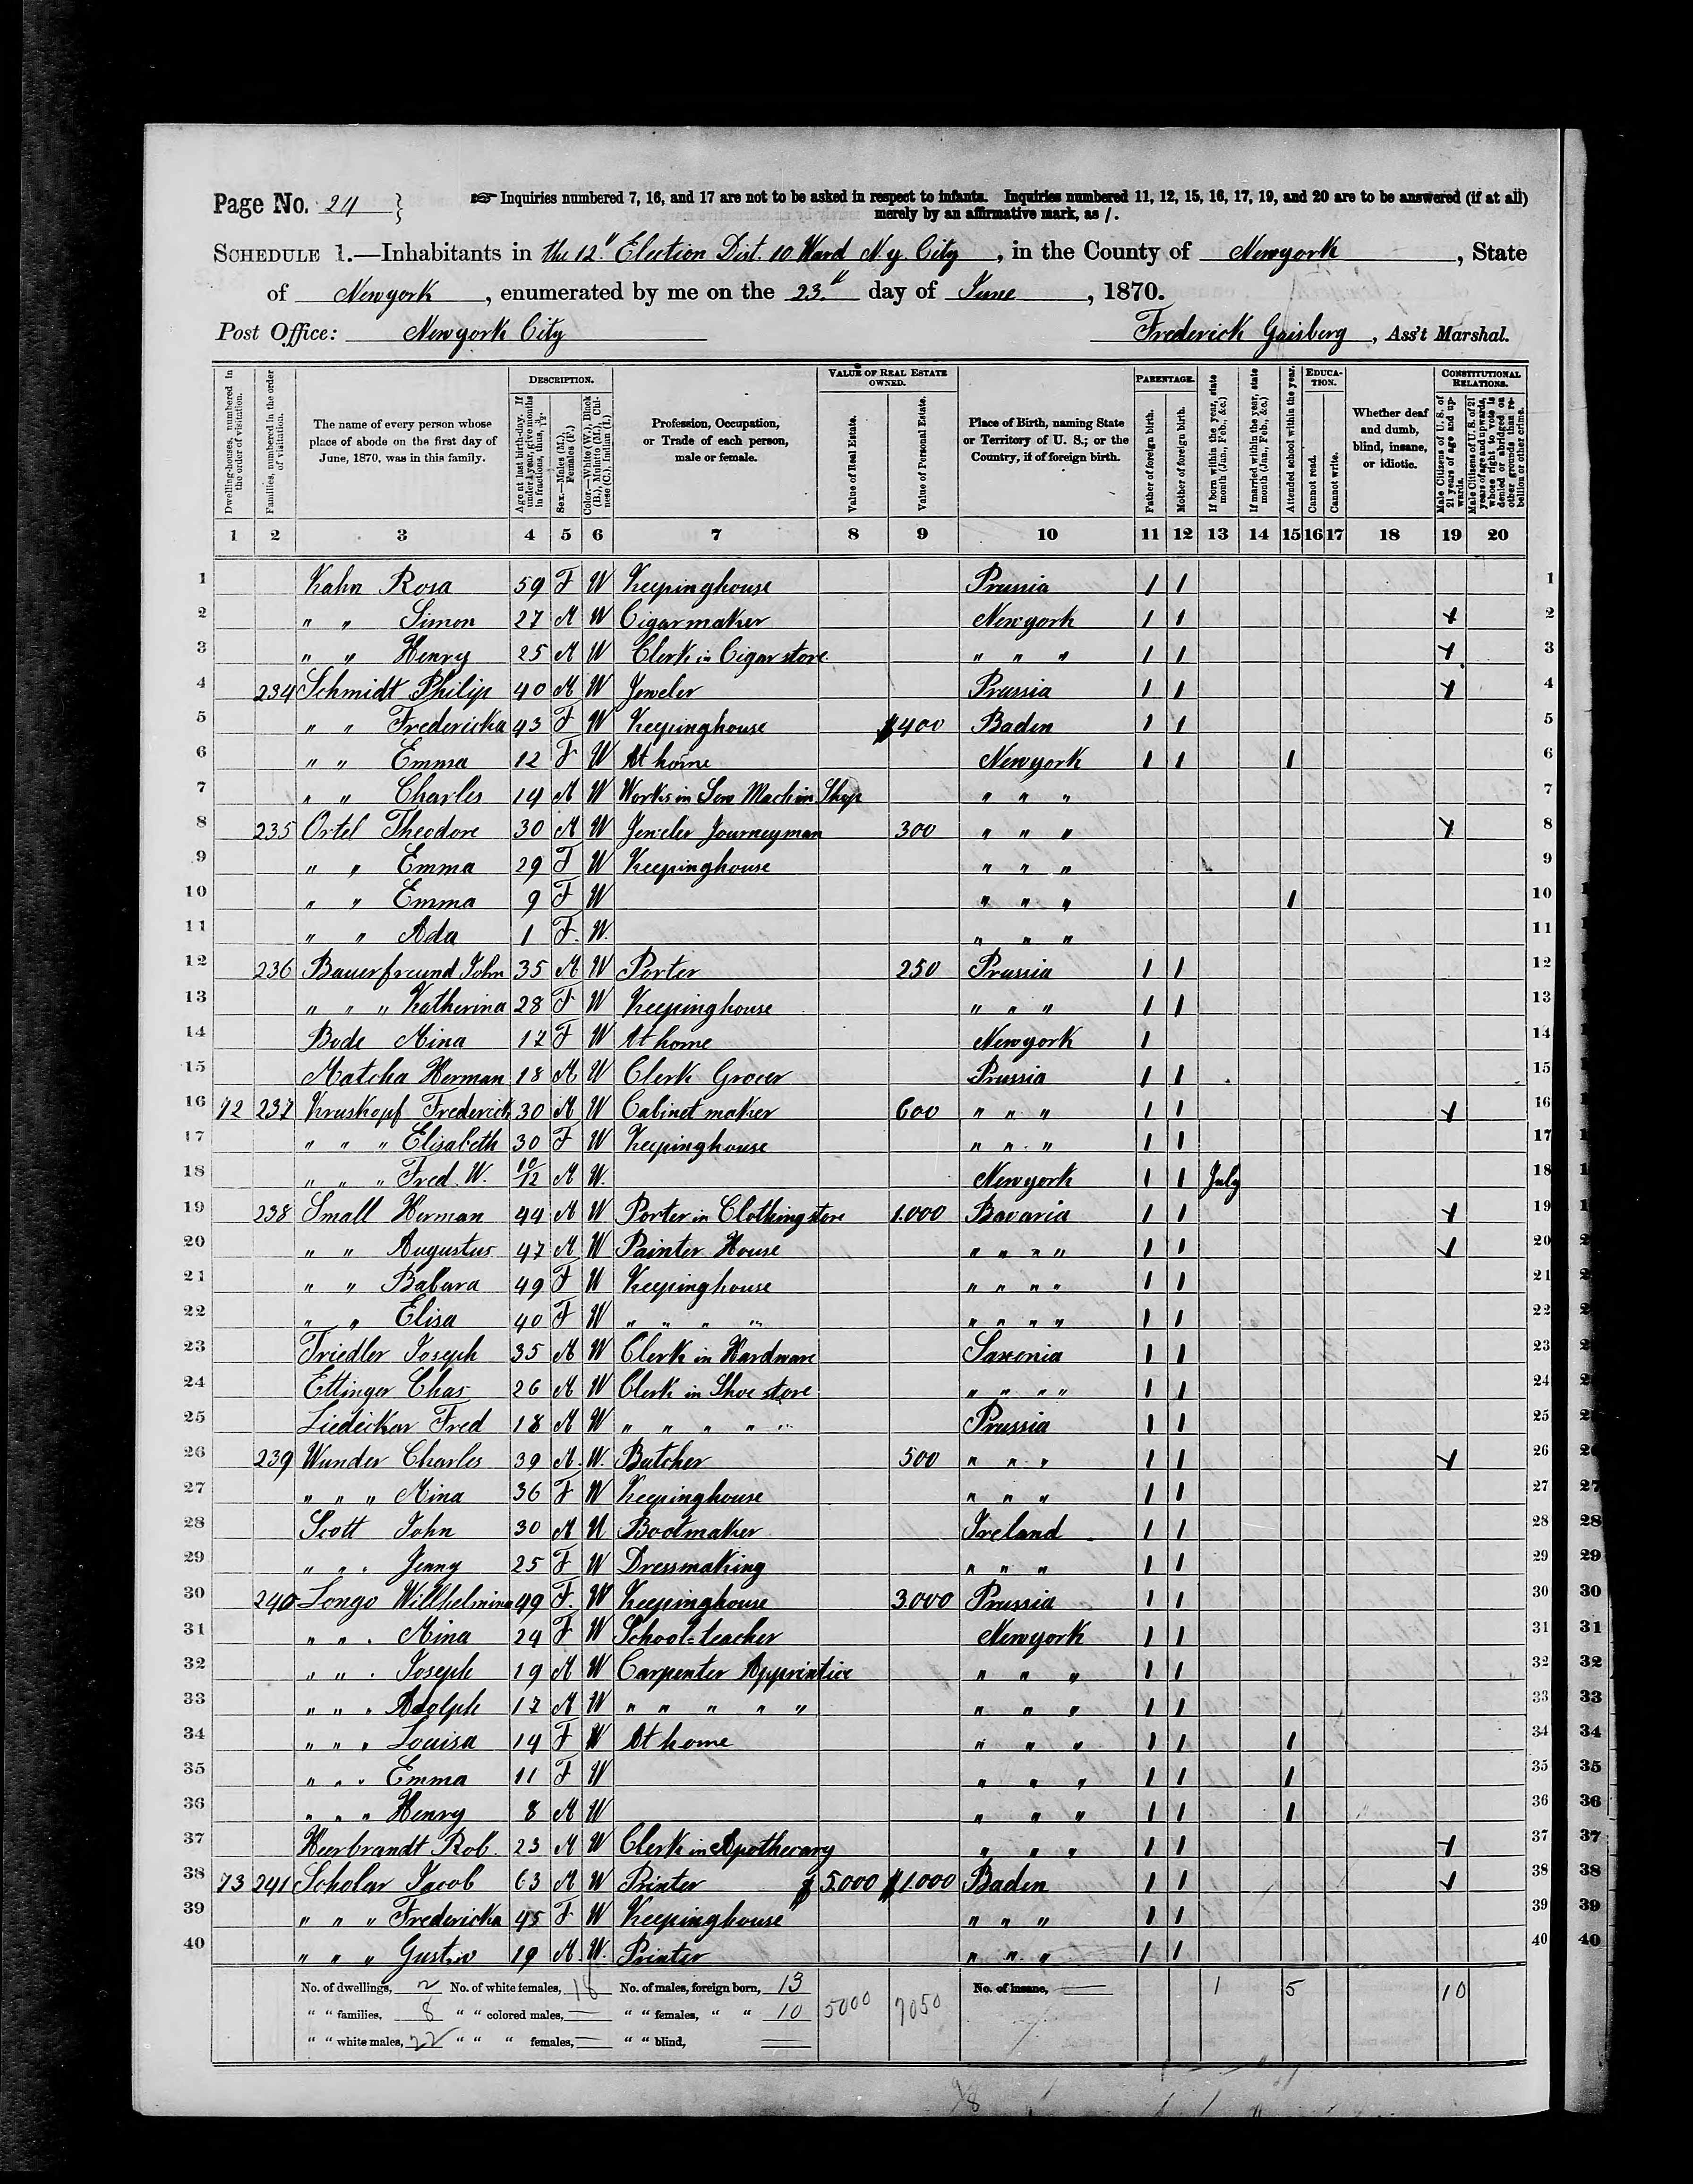 Page No. 24 } ☞ Inquiries numbered 7, 16, and 17 are not to be asked in respect to infants. Inquiries numbered 11, 12, 15, 16, 17, 19, and 20 are to be answered (if at all)
merely by an affirmative mark, as /.
SCHEDULE 1.—Inhabitants in the 12" Election Dist. 10 Ward N.y. City, in the County of Newyork, State
of Newyork, enumerated by me on the 23." day of June, 1870.
Post Office: Newyork City Frederick Gaisberg, Ass't Marshal.
Dwelling-houses, numbered in the order of visitation.
Families, numbered in the order of visitation.
The name of every person whose place of abode on the first day of June, 1870, was in this family.
DESCRIPTION.
Age at last birth-day. If under 1 year, give months in fractions, thus, 3/12.
Sex.—Males (M.), Females (F.)
Color.—White (W.), Black (B.), Mulatto (M.), Chinese (C.), Indian (I.)
Profession, Occupation, or Trade of each person, male or female.
VALUE OF REAL ESTATE OWNED.
Value of Real Estate.
Value of Personal Estate.
Place of Birth, naming State or Territory of U. S.; or the Country, if of foreign birth.
PARENTAGE.
Father of foreign birth.
Mother of foreign birth.
If born within the year, state month (Jan., Feb., &c.)
If married within the year, state month (Jan., Feb., &c.)
Attended school within the year.
EDUCATION.
Cannot read.
Cannot write.
Whether deaf and dumb, blind, insane, or idiotic.
CONSTITUTIONAL RELATIONS.
Male Citizens of U. S. of 21 years of age and upwards.
Male Citizens of U. S. of 21 years of age and upwards, whose right to vote is denied or abridged on other grounds than rebellion or other crime.
1 2 3 4 5 6 7 8 9 10 11 12 13 14 15 16 17 18 19 20
1 Kahn Rosa 59 F W Keepinghouse Prussia / / 1
2 " " Simon 27 M W Cigarmaker Newyork / / / 2
3 " " Henry 25 M W Clerk in Cigar store " " " / / / 3
4 234 Schmidt Philip 40 M W Jeweler Prussia / / / 4
5 " " Fredericka 43 F W Keepinghouse $400 Baden / / 5
6 " " Emma 12 F W At home Newyork / / / 6
7 " " Charles 14 M W Works in Sew Machin Shop " " " 7
8 235 Ortel Theodore 30 M W Jeweler Journeyman 300 " " " / 8
9 " " Emma 29 F W Keepinghouse " " " 9
10 " " Emma 9 F W " " " / 10
11 " " Ada 1 F. W. " " " 11
12 236 Bauerfreund John 35 M W Porter 250 Prussia / / 12
13 " " " Katherina 28 F W Keepinghouse " " " / / 13
14 Bode Mina 17 F W At home Newyork / 14
15 Matcha Herman 18 M W Clerk Grocer Prussia / / 15
16 72 237 Kruskopf Frederick 30 M W Cabinet maker 600 " " " / / / 16
17 " " " Elisabeth 30 F W Keepinghouse " " " / / 17
18 " " " Fred. W. 10/12 M W. Newyork / / July 18
19 238 Small Herman 44 M W Porter in Clothing store 1.000 Bavaria / / / 19
20 " " Augustus 47 M W Painter House " " " " / / / 20
21 " " Babara 49 F W Keepinghouse " " " " / / 21
22 " " Elisa 40 F W " " " " " " " " / / 22
23 Friedler Joseph 35 M W Clerk in Hardware Saxonia / / 23
24 Ettinger Chas 26 M W Clerk in Shoe store " " " " / / 24
25 Liedeickar Fred 18 M W " " " " " Prussia / / 25
26 239 Wunder Charles 39 M. W. Butcher 500 " " " / / / 26
27 " " " Mina 36 F W Keepinghouse " " " / / 27
28 Scott John 30 M W Bootmaker Ireland / / 28
29 " " " Jenny 25 F W Dressmaking " " " / / 29
30 240 Longo Willhelmina 49 F. W Keepinghouse 3.000 Prussia / / 30
31 " " " Mina 24 F W School=teacher Newyork / / 31
32 " " " Joseph 19 M W Carpenter Apprintice " " " / / 32
33 " " " Adolph 17 M W " " " " " " " " / / 33
34 " " " Louisa 14 F W At home " " " / / / 34
35 " " " Emma 11 F W " " " / / / 35
36 " " " Henry 8 M W " " " / / / 36
37 Heerbrandt Rob. 23 M W Clerk in Apothecary " " " / / / 37
38 73 241 Scholar Jacob 63 M W Printer $5.000 $1.000 Baden / / / 38
39 " " " Fredericka 45 F W Keepinghouse " " " / / 39
40 " " " Gustav 19 M. W. Printer " " " / / 40
No. of dwellings, 2 No. of white females, 18 No. of males, foreign born, 13 5000 7050 No. of insane, 1 5 10
" " families, 8 " " colored males, — " " females, " " 10
" " white males, 22 " " " females, — " " blind,